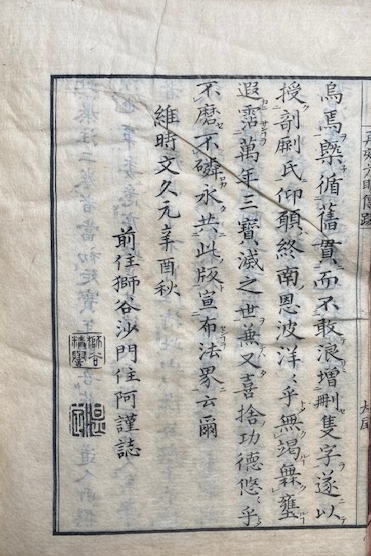 烏馬槩循舊貫而不敢浪增刪隻字遂以
授剞劂氏仰願終南恩波洋々乎無竭無壅
遐霑萬年三寶滅之世兼又喜捨功德悠々乎
不磨不磷永共此版宣布法界云爾
維時文久元辛酉秋
前住獅谷沙門住阿謹誌
獅谷